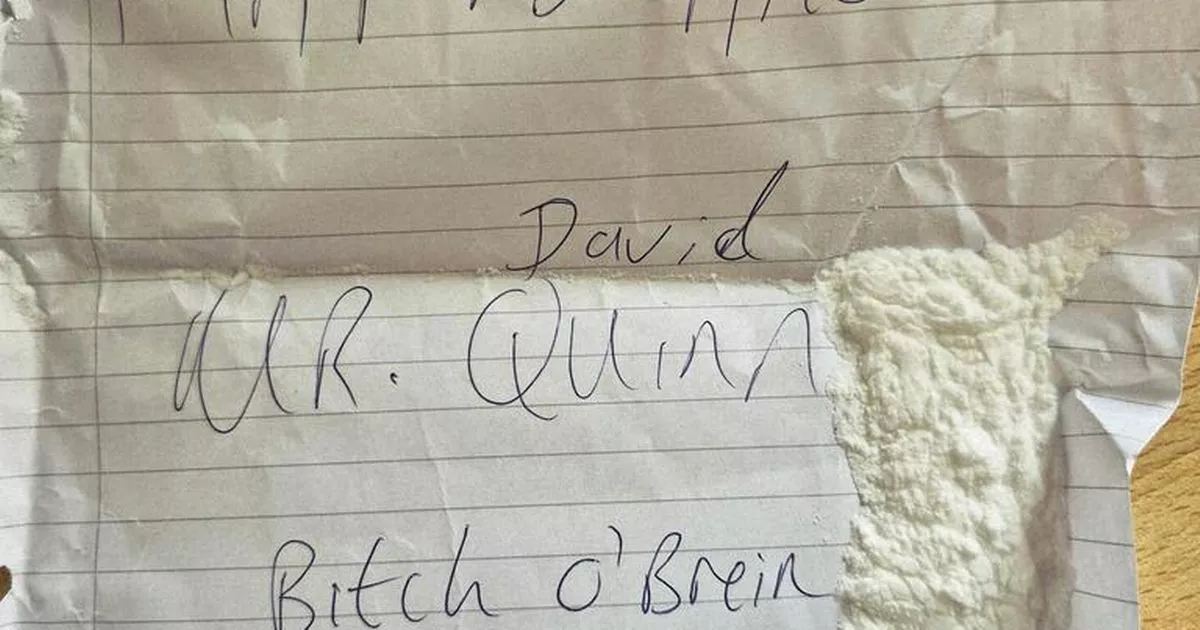 David
MR. Quinn
Bitch O'Brein